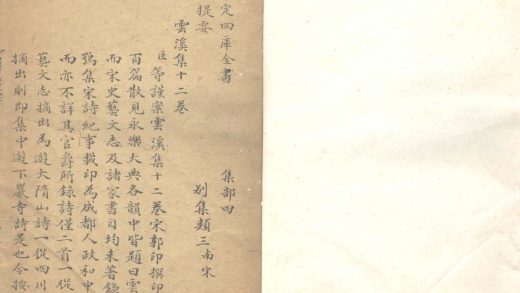 定四庫全書　集部四
提要　別集類三南宋
雲溪集十二卷
臣等謹案雲溪集十二卷宋郭印撰印
百篇散見永樂大典各韻中皆題曰雲
而宋史藝文志及諸家書目均未著錄
鶚集宋詩紀事載印為成都人政和中
而亦不詳其官爵所錄詩僅二首一從
藝文志摘出為遊大隋山詩一從四川
摘出則即集中遊下巖寺詩是也今按